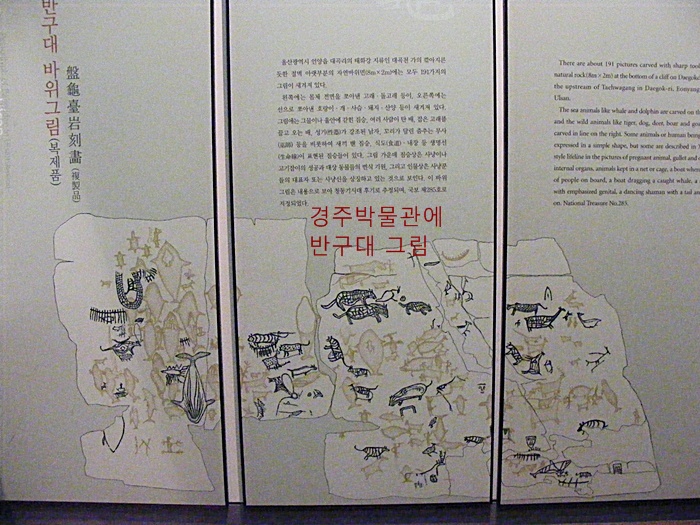 반구대 바위그림(복제품)
盤龜臺岩刻畵(複製品)
울산광역시 언양읍 대곡리의 태화강 지류인 대곡천 가의 깎아지른
듯한 절벽 아랫부분의 자연바위면(8m×2m)에는 모두 191가지의
그림이 새겨져 있다.
왼쪽에는 몸체 전면을 쪼아낸 고래 · 돌고래 등이, 오른쪽에는
선으로 쪼아낸 호랑이 · 개 · 사슴 · 돼지 · 산양 등이 새겨져 있다.
그림에는 그물이나 울안에 갇힌 짐승, 여러 사람이 탄 배, 잡은 고래를
끌고 오는 배, 성기(性器)가 강조된 남자, 꼬리가 달린 춤추는 무사
(巫師) 등을 비롯하여 새끼 밴 짐승, 식도(食道) · 내장 등 생명선
(生命線)이 표현된 짐승들이 있다. 그림 가운데 짐승상은 사냥이나
고기잡이의 성공과 대상 동물들의 번식 기원, 그리고 인물상은 사냥꾼
들의 대표자 또는 사냥신을 상징하고 있는 것으로 보인다. 이 바위
그림은 내용으로 보아 청동기시대 후기로 추정되며, 국보 제285호로
지정되었다.
경주박물관에
반구대 그림
There are about 191 pictures carved with sharp tool
natural rock(8m×2m) at the bottom of a cliff on Daegok
the upstream of Taehwagang in Daegok-ri, Eonyang
Ulsan.
The sea animals like whale and dolphin are carved on th
and the wild animals like tiger, dog, deer, boar and goa
carved in line on the right. Some animals or human being
expressed in a simple shape, but some are described in X
style lifeline in the pictures of pregnant animal, gullet and
internal organs, animals kept in a rut or cage, a boat where
of people on board, a boat dragging a caught whale, a
with emphasized genital, a dancing shaman with a tail an
on. National Treasure No.285.